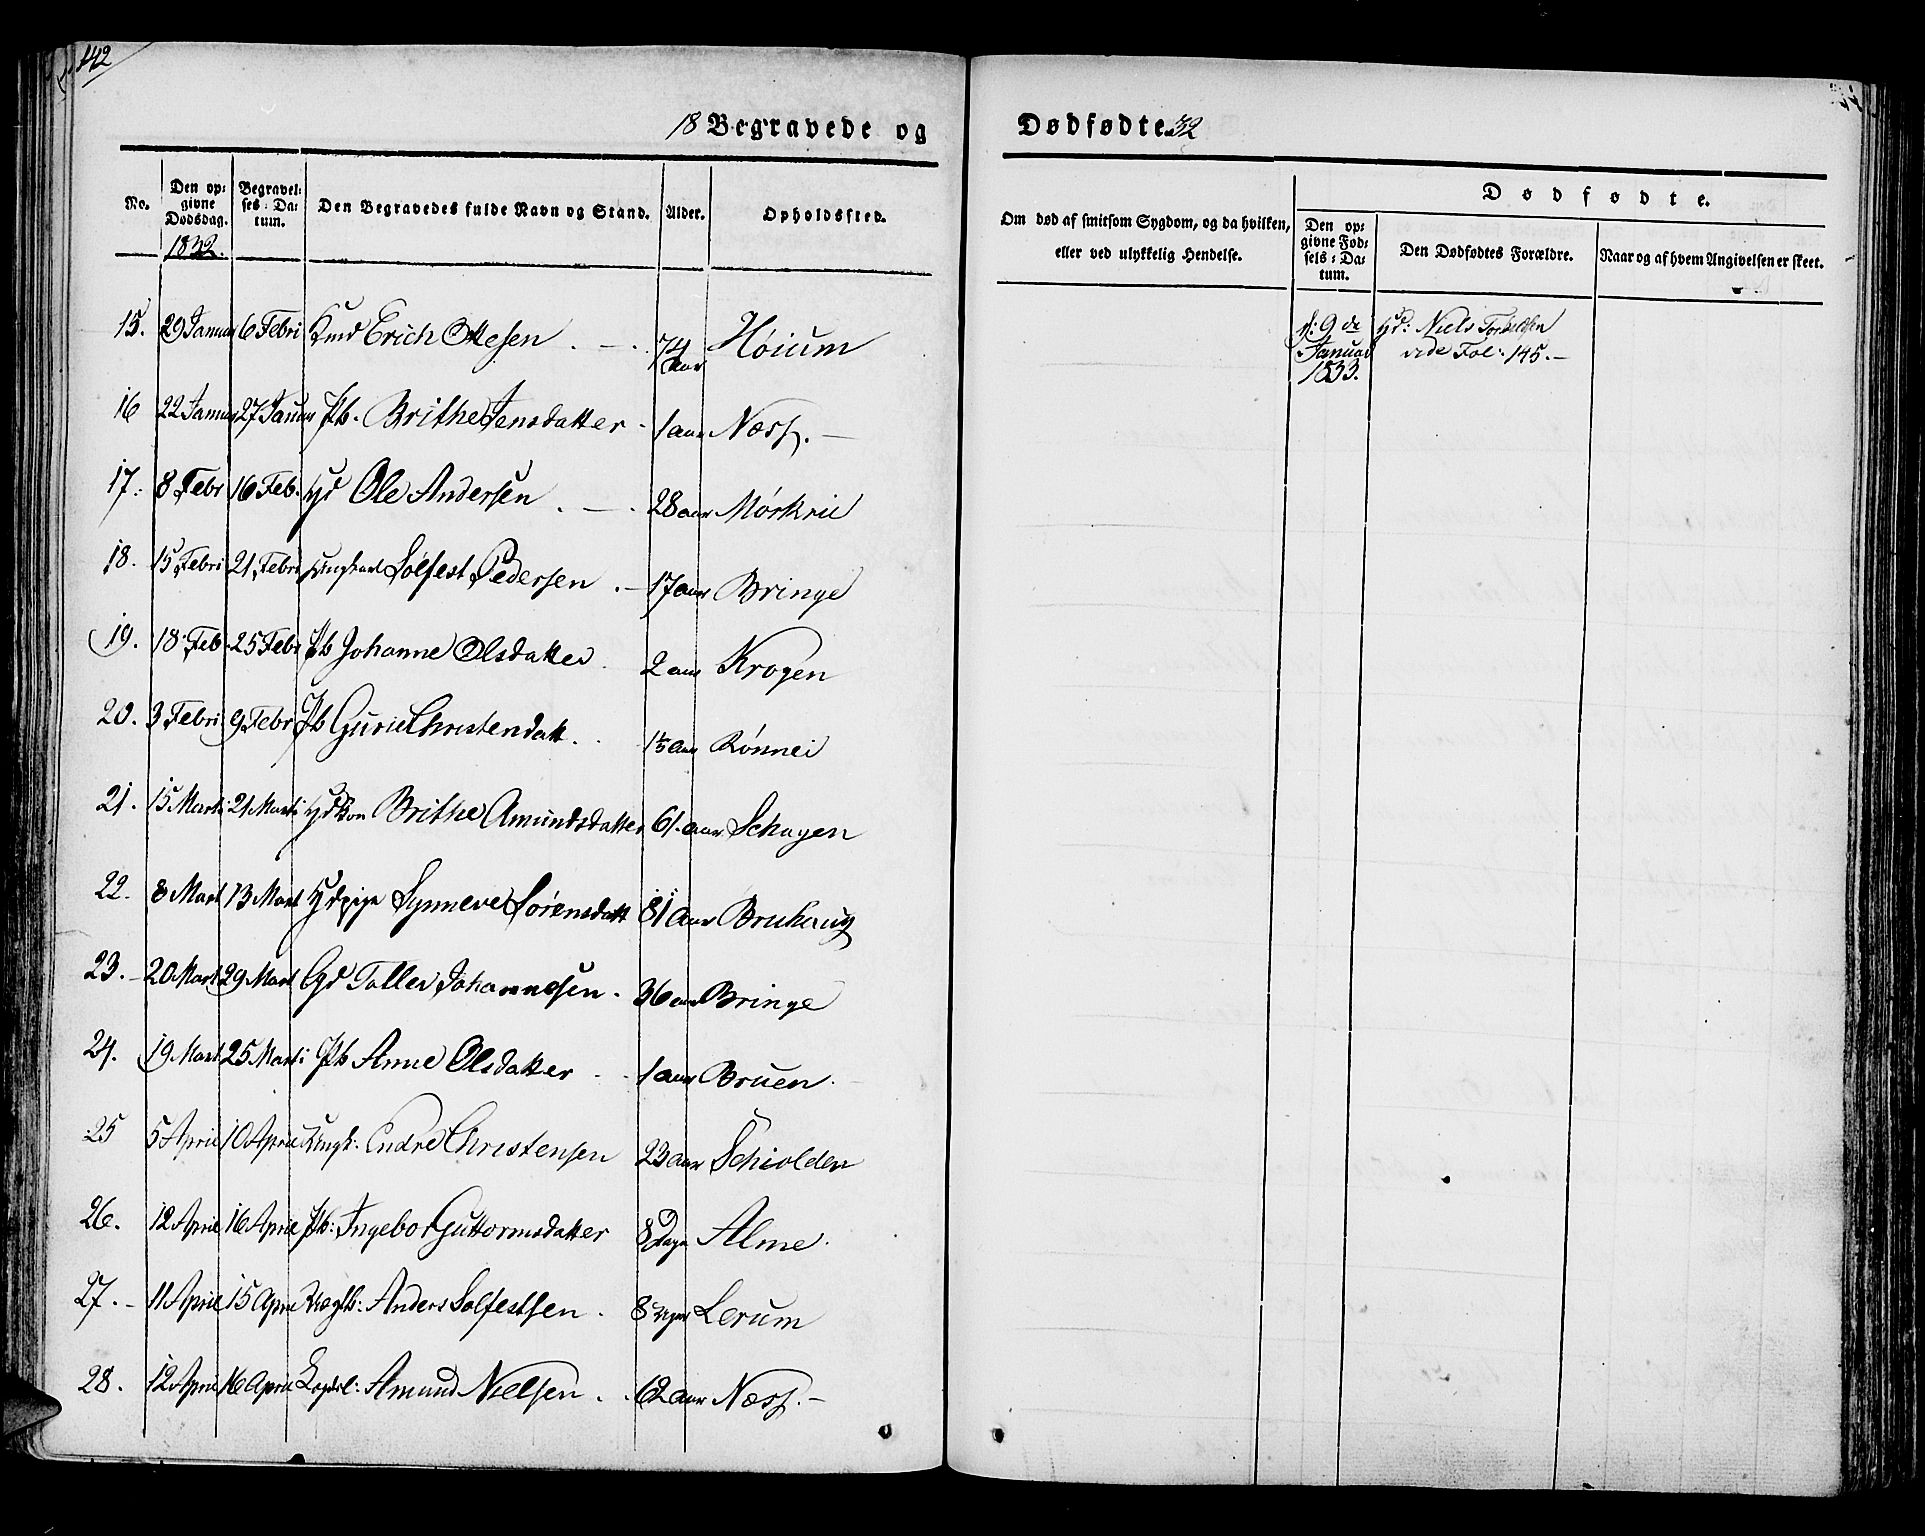 142
18 Begravede og Dødfødte 32
No. Den opgivne Dødsdag. Begravelses-Datum. Den Begravedes fulde Navn og Stand. Alder. Opholdssted.
1832.
Om død af smitsom Sygdom, og da hvilken, eller ved ulykkelig Hendelse.
Dødfødte.
Den opgivne Fødsels-Datum. Den Dødfødtes Forældre. Naar og af hvem Angivelsen er skeet.
15. 29 Januar 6 Febri Kmd Erich Ottesen 74 aar Høium
16 22 Januar 27 Januar Pb. Brithe Jensdatter 1 aar Næss.
17. 8 Febr 16 Feb. Hd Ole Andersen 28 aar Mørkrie
18. 15 Febri 21 Febri Ungkarl Solfest Pedersen 17 aar Bringe
19. 18 Feb. 25 Febr Pb Johanne Olsdatter 2 aar Krogen
20. 3 Febri 9 Febr Pb Gurie Christensdatt. 1½ aar Rønnei
21. 15 Marti 21 Marti Hd Kon Brithe Amundsdatter 61. aar Schagen
22. 8 Mart 13 Mart Hdpige Synneve Sørensdatt 81 aar Bruhaug
23. 20 Mart 29 Mart Gd Tollev Johannesen. 36 aar Bringe
24. 19 Mart 25 Marti Pb Anne Olsdatter 1 aar Bruen.
25 5 April 10 April Ungk: Endre Christensen 23 aar Schiolden
26. 12 April 16 April Pb: Ingebor Guttormsdatter 8 Dage Alme.
27. 11 April 15 April Anders Solfestsen. 8 uger Lerum
28. 12 April 16 April Amund Nielsen. 62 aar Næss.
f: 9 de Januar 1833. Hd: Niels vide Fol: 145.